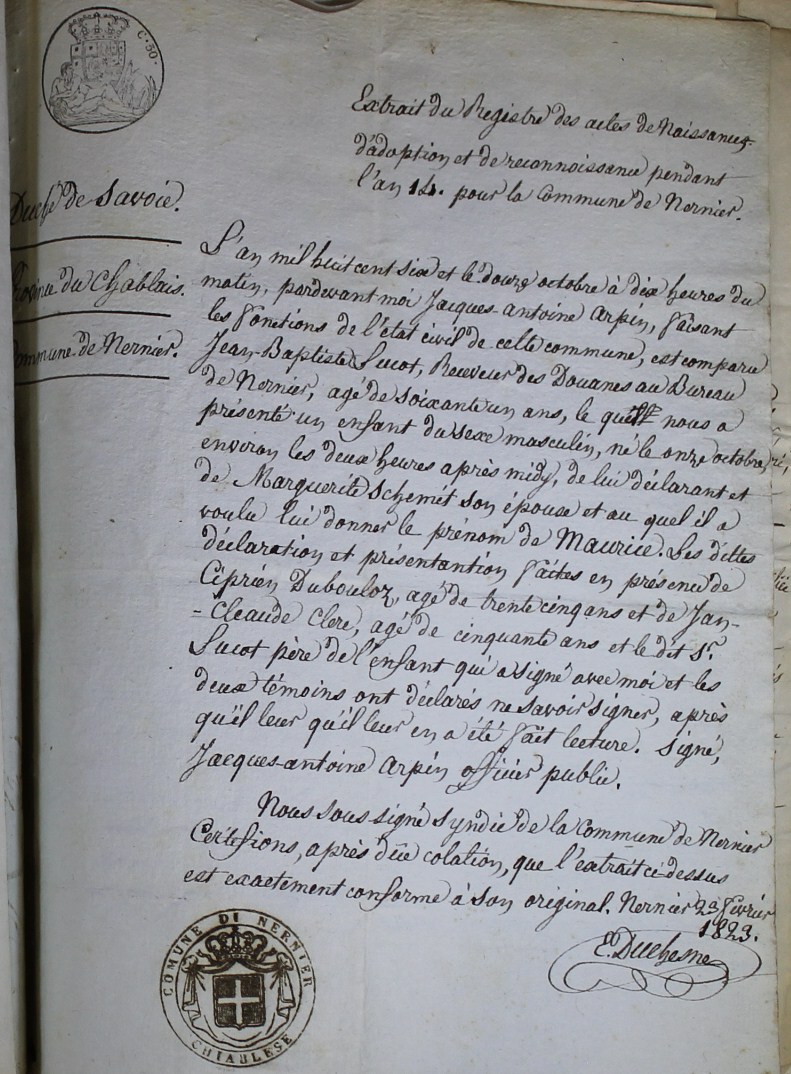 C. 50.
Extrait du Registre des actes de Naissances
d'adoption et de reconnoissance pendant
l'an 14. pour la Commune de Nernier.
Duché de Savoie.
Province du Chablais.
Commune de Nernier.
L'an mil huit cent six et le douze octobre à dix heures du
matin, pardevant moi Jacques-antoine Arpin, faisant
les fonctions de l'état civil de cette commune, est comparu
Jean-Baptiste Sucot, Receveur des Douanes au Bureau
de Nernier, agé de soixante un ans, le quel nous a
présenté un enfant du sexe masculin, né le onze octobre,
environ les deux heures après midy, de lui déclarant et
de Marguerite Schemit son épouse et au quel il a
voulu lui donner le prénom de Maurice. Les dittes
déclaration et présentantion faites en présence de
Ciprien Dubouloz, agé de trente cinq ans et de Jan-
-Cleaude Clerc, agé de cinquante ans et le dit Sr.
Sucot père de l'enfant qui a signé avec moi et les
deux témoins ont déclarés ne savoir signer, après
qu'il leur qu'il leur en a été fait lecture. Signé,
Jacques-antoine Arpin officier public.
Nous sous signé syndic de la Commune de Nernier
Certifions, après dûe colation, que l'extrait ci-dessus
est exactement conforme à son original. Nernier 23 février
1823.
E. Duchesne
COMUNE DI NERNIER
CHIABLESE